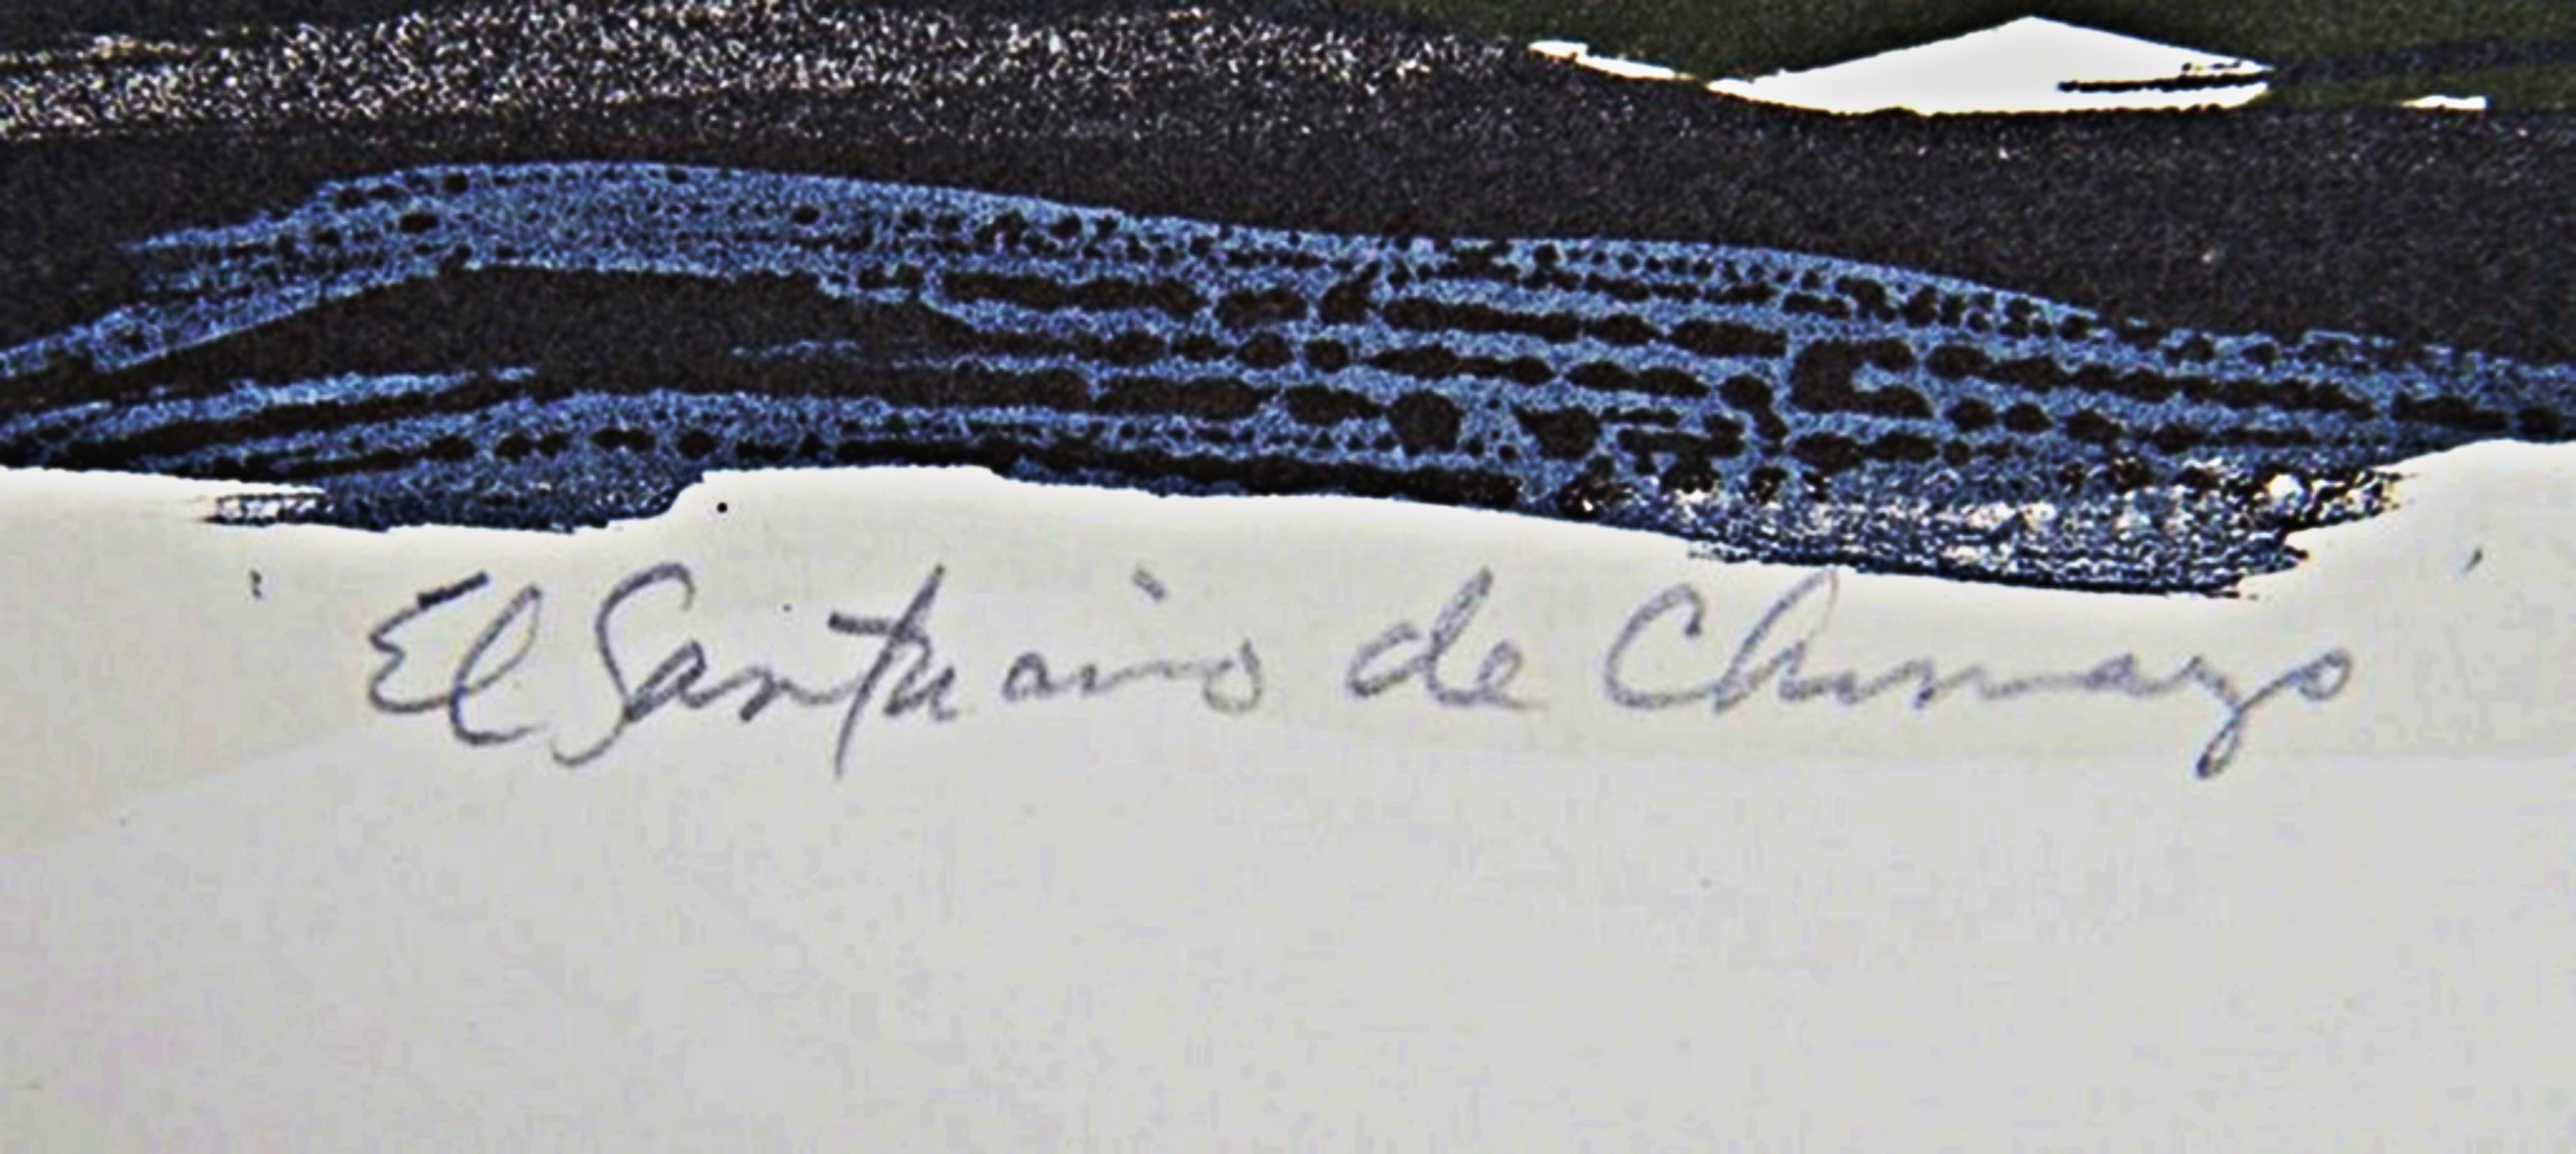 El Santuario de Chimayo